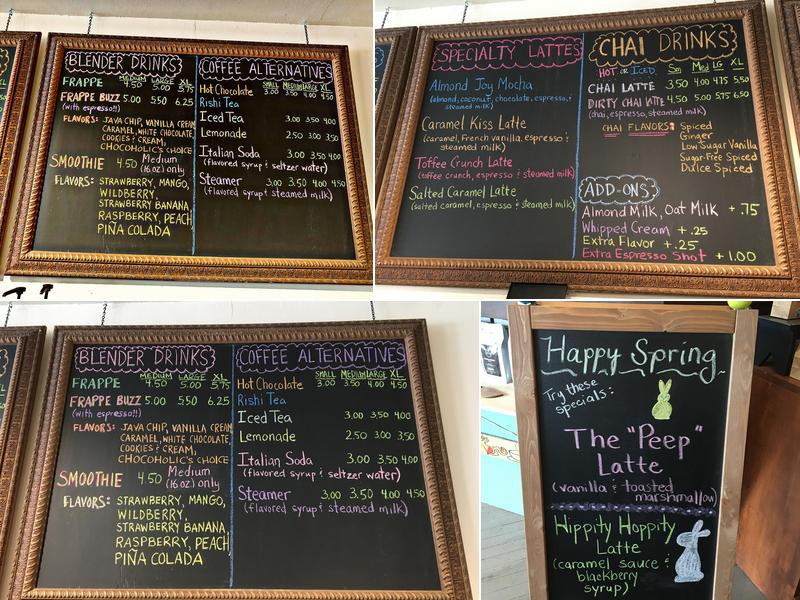 BLENDER DRINKS
MEDIUM LARGE XL
FRAPPE 4.50 5.00 5.75
FRAPPE BUZZ 5.00 5.50 6.25
(with espresso!!)
FLAVORS: JAVA CHIP, VANILLA CREAM
CARAMEL, WHITE CHOCOLATE,
COOKIES & CREAM,
CHOCOHOLIC'S CHOICE
SMOOTHIE 4.50 Medium
(16oz) only
FLAVORS: STRAWBERRY, MANGO,
WILDBERRY,
STRAWBERRY BANANA,
RASPBERRY, PEACH
PIÑA COLADA
COFFEE ALTERNATIVES
SMALL MEDIUM LARGE XL
Hot Chocolate 3.00 3.50 4.00 4.50
Rishi Tea
Iced Tea 3.00 3.50 4.00
Lemonade 2.50 3.00 3.50
Italian Soda 3.00 3.50 4.00
(flavored syrup & seltzer water)
Steamer 3.00 3.50 4.00 4.50
(flavored syrup & steamed milk)
SPECIALTY LATTES
Almond Joy Mocha
(almond, coconut, chocolate, espresso &
steamed milk)
Caramel Kiss Latte
(caramel, French vanilla, espresso &
steamed milk)
Toffee Crunch Latte
(toffee crunch, espresso & steamed milk)
Salted Caramel Latte
(salted caramel, espresso & steamed milk)
CHAI DRINKS
HOT OR ICED Sm Med LG XL
CHAI LATTE 3.50 4.00 4.75 5.50
DIRTY CHAI LATTE 4.50 5.00 5.75 6.50
(chai, espresso, steamed milk)
CHAI FLAVORS: Spiced
Ginger
Low Sugar Vanilla
Sugar-Free Spiced
Dulce Spiced
ADD-ONS
Almond Milk, Oat Milk + .75
Whipped Cream + .25
Extra Flavor + .25
Extra Espresso Shot + 1.00
BLENDER DRINKS
MEDIUM LARGE XL
FRAPPE 4.50 5.00 5.75
FRAPPE BUZZ 5.00 5.50 6.25
(with espresso!!)
FLAVORS: JAVA CHIP, VANILLA CREAM
CARAMEL, WHITE CHOCOLATE,
COOKIES & CREAM,
CHOCOHOLIC'S CHOICE
SMOOTHIE 4.50 Medium
(16oz) only
FLAVORS: STRAWBERRY, MANGO,
WILDBERRY,
STRAWBERRY BANANA,
RASPBERRY, PEACH
PIÑA COLADA
COFFEE ALTERNATIVES
SMALL MEDIUM LARGE XL
Hot Chocolate 3.00 3.50 4.00 4.50
Rishi Tea
Iced Tea 3.00 3.50 4.00
Lemonade 2.50 3.00 3.50
Italian Soda 3.00 3.50 4.00
(flavored syrup & seltzer water)
Steamer 3.00 3.50 4.00 4.50
(flavored syrup & steamed milk)
Happy Spring
Try these
specials:
The "Peep"
Latte
(vanilla & toasted
marshmallow)
Hippity Hoppity
Latte
(caramel sauce &
blackberry
syrup)